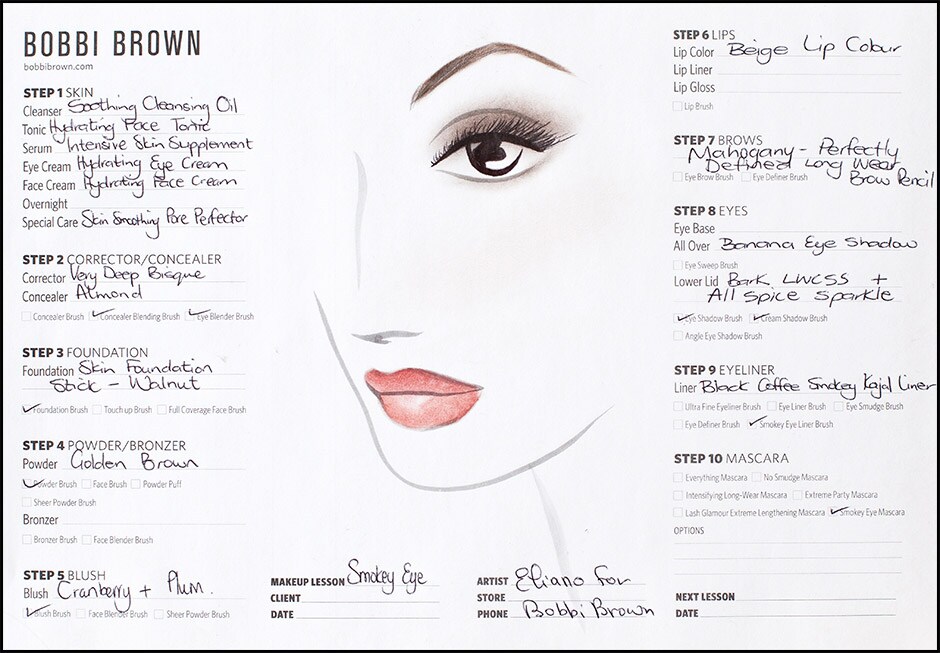 BOBBI BROWN
bobbibrown.com
STEP 1 SKIN
Cleanser Soothing Cleansing Oil
Tonic Hydrating Face Tonic
Serum Intensive Skin Supplement
Eye Cream Hydrating Eye Cream
Face Cream Hydrating Face Cream
Overnight
Special Care Skin Smoothing Pore Perfector
STEP 2 CORRECTOR/CONCEALER
Corrector Very Deep Bisque
Concealer Almond
Concealer Brush Concealer Blending Brush Eye Blender Brush
STEP 3 FOUNDATION
Foundation Skin Foundation
Stick - Walnut
Foundation Brush Touch up Brush Full Coverage Face Brush
STEP 4 POWDER/BRONZER
Powder Golden Brown
Powder Brush Face Brush Powder Puff
Sheer Powder Brush
Bronzer
Bronzer Brush Face Blender Brush
STEP 5 BLUSH
Blush Cranberry + Plum.
Blush Brush Face Blender Brush Sheer Powder Brush
MAKEUP LESSON Smokey Eye
CLIENT
DATE
ARTIST Eliano for
STORE
PHONE Bobbi Brown
STEP 6 LIPS
Lip Color Beige Lip Colour
Lip Liner
Lip Gloss
Lip Brush
STEP 7 BROWS
Mahogany - Perfectly
Defined Long Wear
Brow Pencil
Eye Brow Brush Eye Definer Brush
STEP 8 EYES
Eye Base
All Over Banana Eye Shadow
Eye Sweep Brush
Lower Lid Bark LWCSS +
All Spice Sparkle
Eye Shadow Brush Cream Shadow Brush
Angle Eye Shadow Brush
STEP 9 EYELINER
Liner Black Coffee Smokey Kajal Liner
Ultra Fine Eyeliner Brush Eye Liner Brush Eye Smudge Brush
Eye Definer Brush Smokey Eye Liner Brush
STEP 10 MASCARA
Everything Mascara No Smudge Mascara
Intensifying Long-Wear Mascara Extreme Party Mascara
Lash Glamour Extreme Lengthening Mascara Smokey Eye Mascara
OPTIONS
NEXT LESSON
DATE